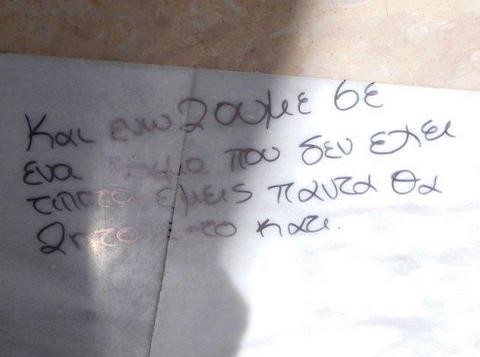 Και ενω ζουμε σε
ενα που δεν εχει
τιποτα εμεις παντα θα
ζηταμε το κατι.